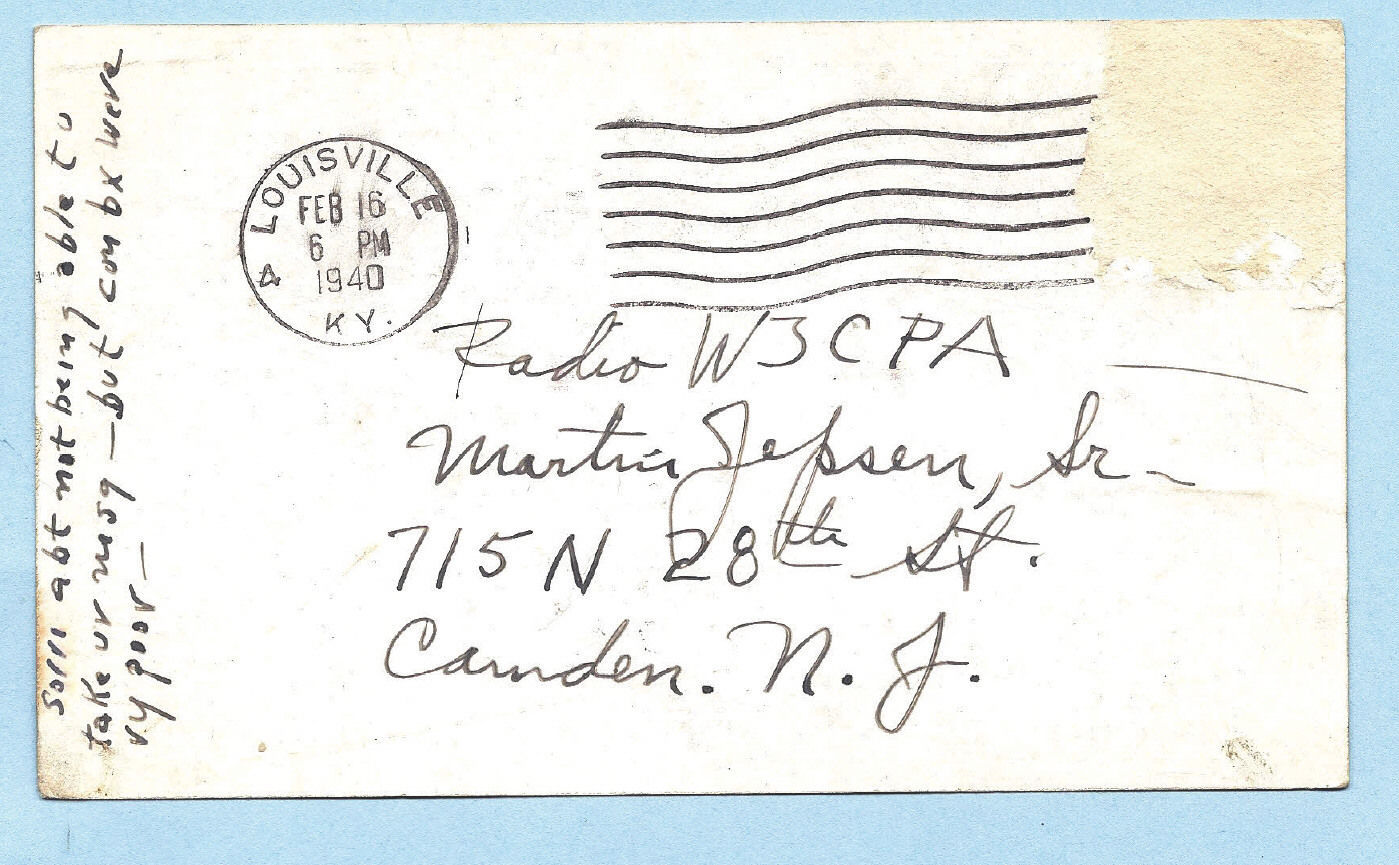 LOUISVILLE
FEB 16
6 PM
1940
4
KY.
Radio W3CPA
Martin Jepsen, Sr.
715 N 28th St.
Camden. N. J.
abt not being able to
take ur msg — but con bx were
vy poor —